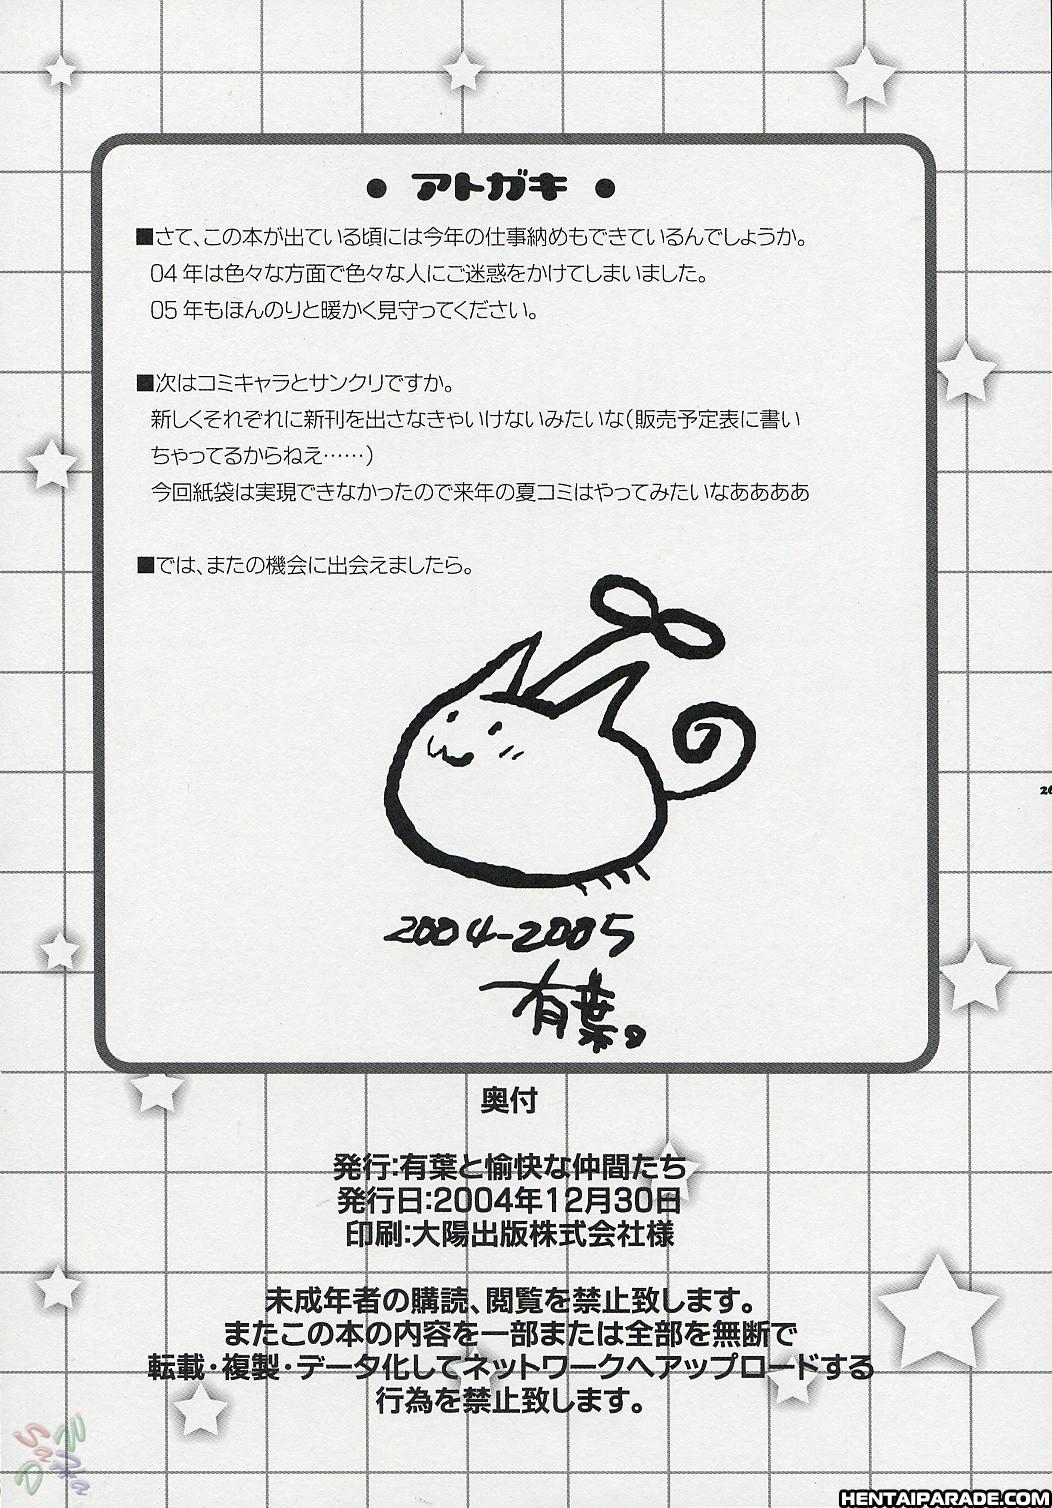 ● アトガキ ●
■さて、この本が出ている頃には今年の仕事納めもできているんでしょうか。
04年は色々な方面で色々な人にご迷惑をかけてしまいました。
05年もほんのりと暖かく見守ってください。
■次はコミキャラとサンクリですか。
新しくそれぞれに新刊を出さなきゃいけないみたいな(販売予定表に書い
ちゃってるからねえ……)
今回紙袋は実現できなかったので来年の夏コミはやってみたいなああああ
■では、またの機会に出会えましたら。
2004-2005
有葉
26
奥付
発行:有葉と愉快な仲間たち
発行日:2004年12月30日
印刷:大陽出版株式会社様
未成年者の購読、閲覧を禁止致します。
またこの本の内容を一部または全部を無断で
転載・複製・データ化してネットワークへアップロードする
行為を禁止致します。
HENTAIPARADE.COM